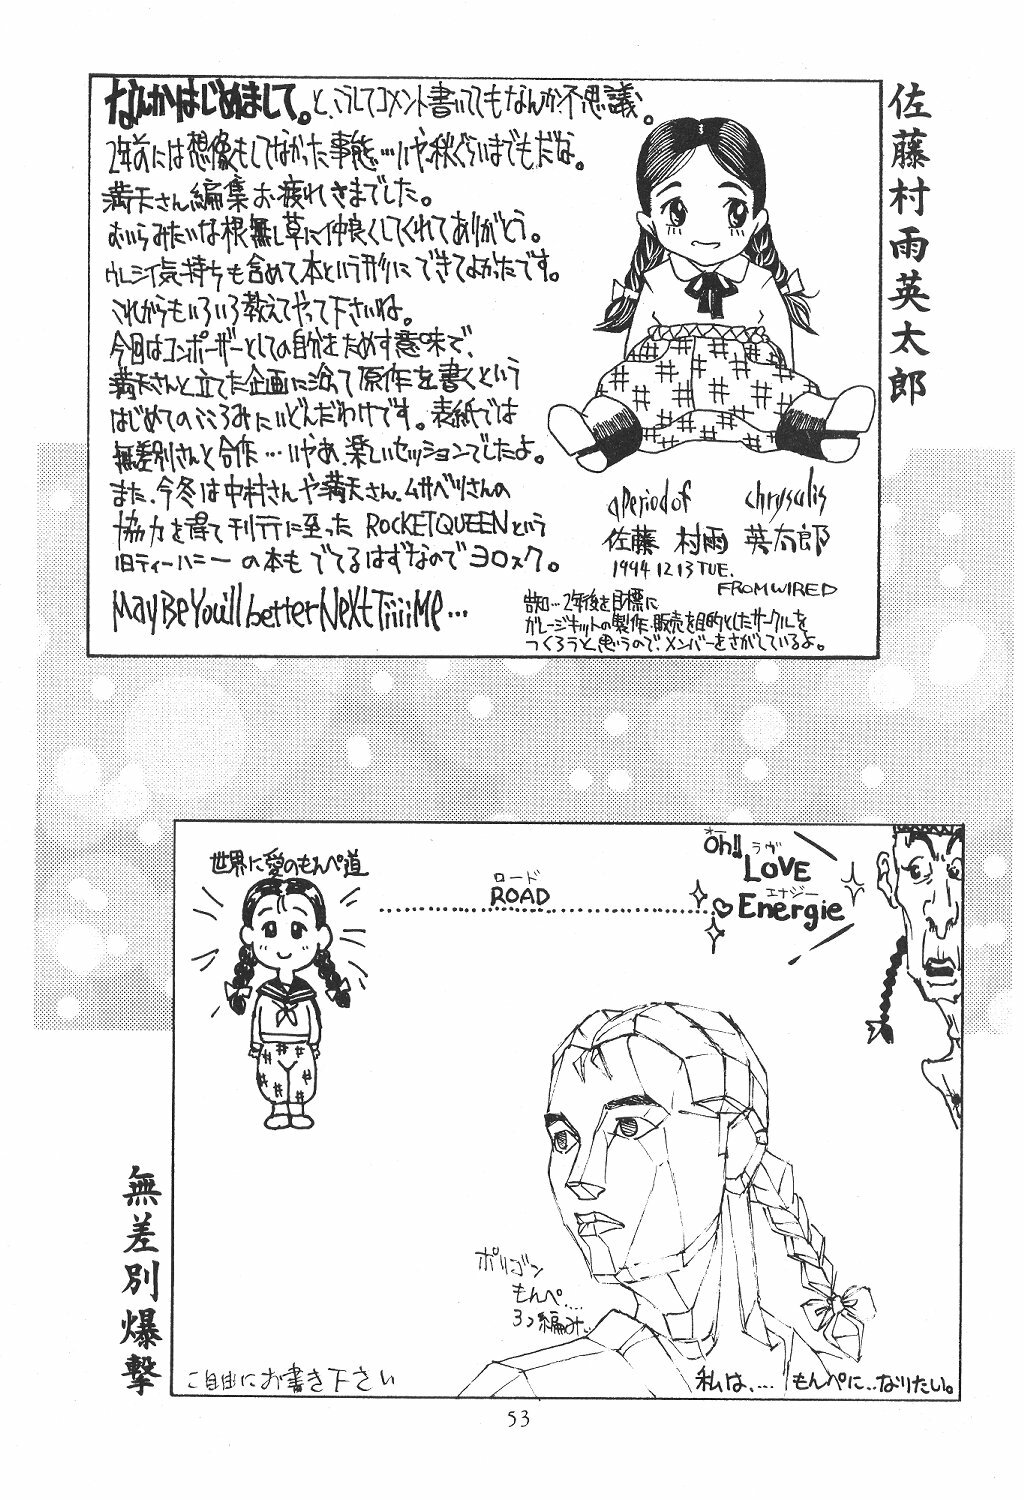 佐藤村雨英太郎
なんかはじめまして。と、こうしてコメント書いてもなんか不思議。
2年前には想像もしてなかった事態…いや、秋ぐらいまでもだな。
満天さん編集お疲れさまでした。
おいらみたいな根無し草に仲良くしてくれてありがとう。
ウレシイ気持ちも含めて本という形にできてよかったです。
これからもいろいろ教えてやって下さいね。
今回はコンポーザーとしての自分をためす意味で、
満天さんと立てた企画に沿って原作を書くという
はじめてのこころみたいどんだわけです。表紙では
無差別さんと合作…いやあ、楽しいセッションでしたよ。
また、今冬は中村さんや満天さん、ムサベツさんの
協力を得て刊行に至った ROCKETQUEENという
旧ティーハニーの本もでてるはずなのでヨロスク。
MayBe You'll better NexT TiiiiMe…
aperiod of chrysalis
佐藤 村雨 英太郎
1994 12 13 TUE.
FROM WIRED
告知…2年後を目標に
ガレージキットの製作・販売を目的としたサークルを
つくろうと思うので、メンバーをさがしているよ。
世界に愛のもんぺ道
ロード
ROAD
オー
Oh!!
ラヴ
LOVE
エナジー
Energie
ポリゴン
もんぺ….
3つ編み..
ご自由にお書き下さい
私は、… もんぺに‥なりたい。
無差別爆撃
53